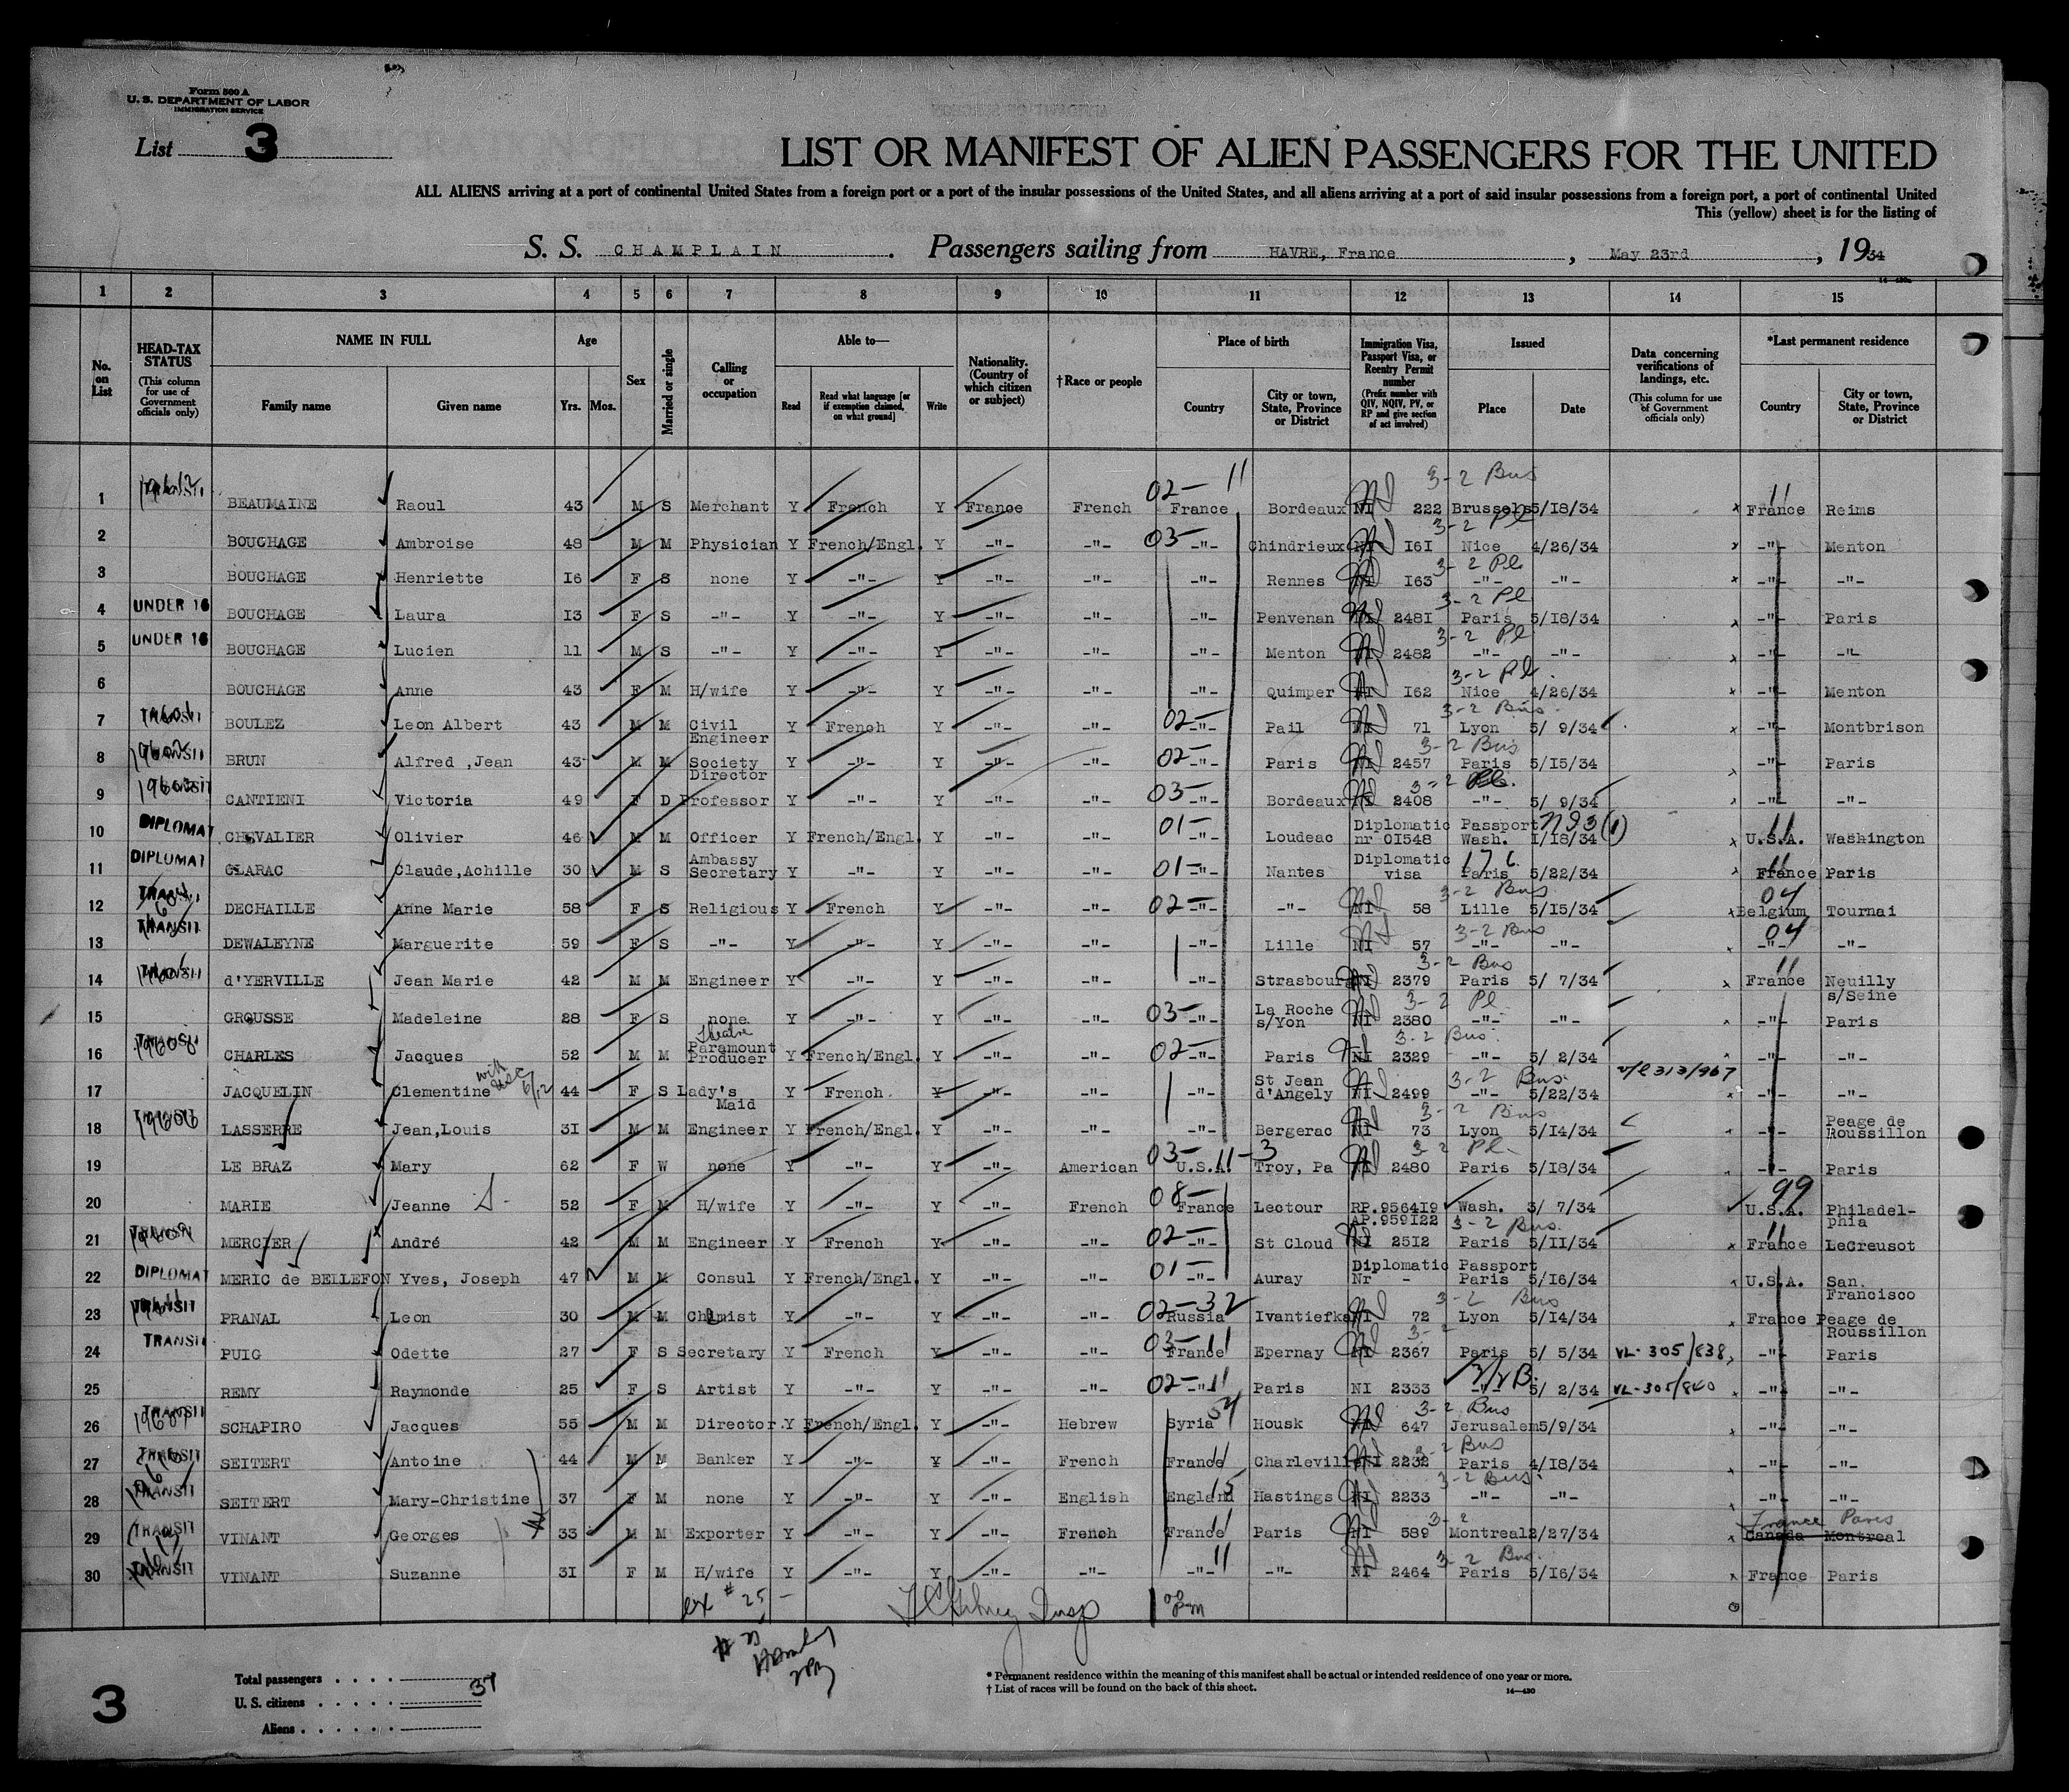 Form 500 A
U. S. DEPARTMENT OF LABOR
IMMIGRATION SERVICE
List 3
LIST OR MANIFEST OF ALIEN PASSENGERS FOR THE UNITED
ALL ALIENS arriving at a port of continental United States from a foreign port or a port of the insular possessions of the United States, and all aliens arriving at a port of said insular possessions from a foreign port, a port of continental United
This (yellow) sheet is for the listing of
S. S. CHAMPLAIN. Passengers sailing from HAVRE, France, May 23rd, 1934
1 2 3 4 5 6 7 8 9 10 11 12 13 14 15
No. on List
HEAD-TAX STATUS (This column for use of Government officials only)
NAME IN FULL
Family name
Given name
Age
Yrs. Mos.
Sex
Married or single
Calling or occupation
Able to—
Read
Read what language [or if exemption claimed, on what ground]
Write
Nationality. (Country of which citizen or subject)
† Race or people
Place of birth
Country
City or town, State, Province or District
Immigration Visa, Passport Visa, or Reentry Permit number (Prefix number with QIV, NQIV, PV, or RP and give section of act involved)
Issued
Place
Date
Data concerning verifications of landings, etc. (This column for use of Government officials only)
*Last permanent residence
Country
City or town, State, Province or District
1 BEAUMAINE Raoul 43 M S Merchant Y French Y France French 02- 11 France Bordeaux NI 222 Brussels 5/18/34 3-2 Bus x France 11 Reims
2 BOUCHAGE Ambroise 48 M M Physician Y French/Engl. Y -"- -"- 03- -"- Chindrieux NI 161 Nice 4/26/34 3-2 Pl x -"- Menton
3 BOUCHAGE Henriette 16 F S none Y -"- Y -"- -"- -"- Rennes NI 163 -"- -"- 3-2 Pl. x -"- -"-
4 UNDER 16 BOUCHAGE Laura 13 F S -"- Y -"- Y -"- -"- -"- Penvenan NI 2481 Paris 5/18/34 3-2 Pl x -"- Paris
5 UNDER 16 BOUCHAGE Lucien 11 M S -"- Y -"- Y -"- -"- -"- Menton NI 2482 -"- -"- 3-2 Pl x -"- -"-
6 BOUCHAGE Anne 43 F M H/wife Y -"- Y -"- -"- -"- Quimper NI 162 Nice 4/26/34 3-2 Pl. x -"- Menton
7 TRANSIT BOULEZ Leon Albert 43 M M Civil Engineer Y French Y -"- -"- 02- -"- Pail NI 71 Lyon 5/ 9/34 3-2 Bus x -"- Montbrison
8 TRANSIT BRUN Alfred ,Jean 43 M M Society Director Y -"- Y -"- -"- 02- -"- Paris NI 2457 Paris 5/15/34 3-2 Bus x -"- Paris
9 TRANSIT CANTIENI Victoria 49 F D Professor Y -"- Y -"- -"- 03- -"- Bordeaux NI 2408 -"- 5/ 9/34 3-2 Pl. x -"- -"-
10 DIPLOMAT CHEVALIER Olivier 46 M M Officer Y French/Engl. Y -"- -"- 01- -"- Loudeac Diplomatic Passport nr 01548 Wash. 1/18/34 (1) x U.S.A. 11 Washington
11 DIPLOMAT CLARAC Claude,Achille 30 M S Ambassy Secretary Y -"- Y -"- -"- 01- -"- Nantes Diplomatic visa Paris 5/22/34 France 11 Paris
12 TRANSIT DECHAILLE Anne Marie 58 F S Religious Y French Y -"- -"- 02- -"- -"- NI 58 Lille 5/15/34 3-2 Bus x Belgium 04 Tournai
13 TRANSIT DEWALEYNE Marguerite 59 F S -"- Y -"- Y -"- -"- -"- Lille NI 57 -"- -"- 3-2 Bus x -"- 04 -"-
14 TRANSIT d'YERVILLE Jean Marie 42 M M Engineer Y -"- Y -"- -"- -"- Strasbourg NI 2379 Paris 5/ 7/34 3-2 Bus x France 11 Neuilly s/Seine
15 GROUSSE Madeleine 28 F S none Y -"- Y -"- -"- 03- -"- La Roche s/Yon NI 2380 -"- -"- 3-2 Pl x -"- Paris
16 TRANSIT 19608 CHARLES Jacques 52 M M Theatre Paramount Producer Y French/Engl. Y -"- -"- 02- -"- Paris NI 2329 -"- 5/ 2/34 3-2 Bus x -"- -"-
17 JACQUELIN Clementine 44 F S Lady's Maid Y French Y -"- -"- -"- St Jean d'Angely NI 2499 -"- 5/22/34 3-2 Bus v/l 313/967 x -"- -"-
18 TRANSIT LASSERRE Jean,Louis 31 M M Engineer Y French/Engl. Y -"- -"- -"- Bergerac NI 73 Lyon 5/14/34 3-2 Bus -"- Peage de Roussillon
19 LE BRAZ Mary 62 F W none Y -"- Y -"- American 03- 11-3 U.S.A. Troy, Pa NI 2480 Paris 5/18/34 3-2 Pl- -"- Paris
20 MARIE Jeanne 52 F M H/wife Y -"- Y -"- French 08- France Lectour RP.956419 AP.959122 Wash. 3/ 7/34 U.S.A. 99 Philadelphia
21 TRANSIT MERCIER André 42 M M Engineer Y French Y -"- -"- 02- -"- St Cloud NI 2512 Paris 5/11/34 3-2 Bus. x France 11 LeCreusot
22 DIPLOMAT MERIC de BELLEFON Yves, Joseph 47 M M Consul Y French/Engl. Y -"- -"- 01- -"- Auray Diplomatic Passport Nr - Paris 5/16/34 U.S.A. San. Francisco
23 TRANSIT PRANAL Leon 30 M M Chimist Y -"- Y -"- -"- 02-32 Russia Ivantiefka NI 72 Lyon 5/14/34 3-2 Bus France Peage de Roussillon
24 TRANSIT PUIG Odette 27 F S Secretary Y French Y -"- -"- 03- 11 France Epernay NI 2367 Paris 5/ 5/34 3-2 VL- 305/838, -"- Paris
25 REMY Raymonde 25 F S Artist Y -"- Y -"- -"- 02- 11 -"- Paris NI 2333 -"- 5/ 2/34 VL-305/840 x -"- -"-
26 TRANSIT SCHAPIRO Jacques 55 M M Director. Y French/Engl. Y -"- Hebrew Syria Housk NI 647 Jerusalem 5/9/34 3-2 Bus x -"- -"-
27 TRANSIT SEITERT Antoine 44 M M Banker Y -"- Y -"- French France 11 Charleville NI 2232 Paris 4/18/34 3-2 Bus x -"- -"-
28 TRANSIT SEITERT Mary-Christine 37 F M none Y -"- Y -"- English England 15 Hastings NI 2233 -"- -"- 3-2 Bus -"- -"-
29 TRANSIT VINANT Georges 33 M M Exporter Y -"- Y -"- French France 11 Paris NI 589 Montreal 2/27/34 3-2 x Canada Montreal France Paris
30 TRANSIT VINANT Suzanne 31 F M H/wife Y -"- Y -"- -"- -"- 11 -"- NI 2464 Paris 5/16/34 3-2 Bus. x France Paris
ex # 25 -
Insp
Total passengers
U. S. citizens
Aliens
3
* Permanent residence within the meaning of this manifest shall be actual or intended residence of one year or more.
† List of races will be found on the back of this sheet.
14—430